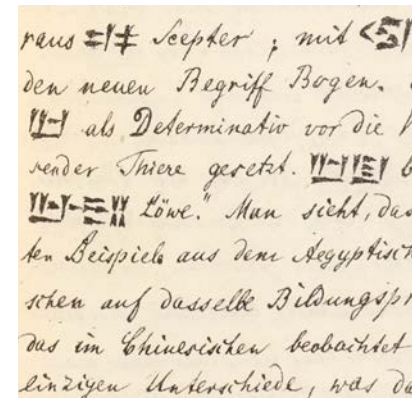 raus Scepter; mit
den neuen Begriff Bogen.
als Determinativ vor die
sender Thiere gesetzt.
Löwe." Man sieht, das
ten Beispiele aus dem Aegyptisch
schen auf dasselbe Bildungspr
das im Chinesischen beobachtet
einzigen Unterschiede, was da